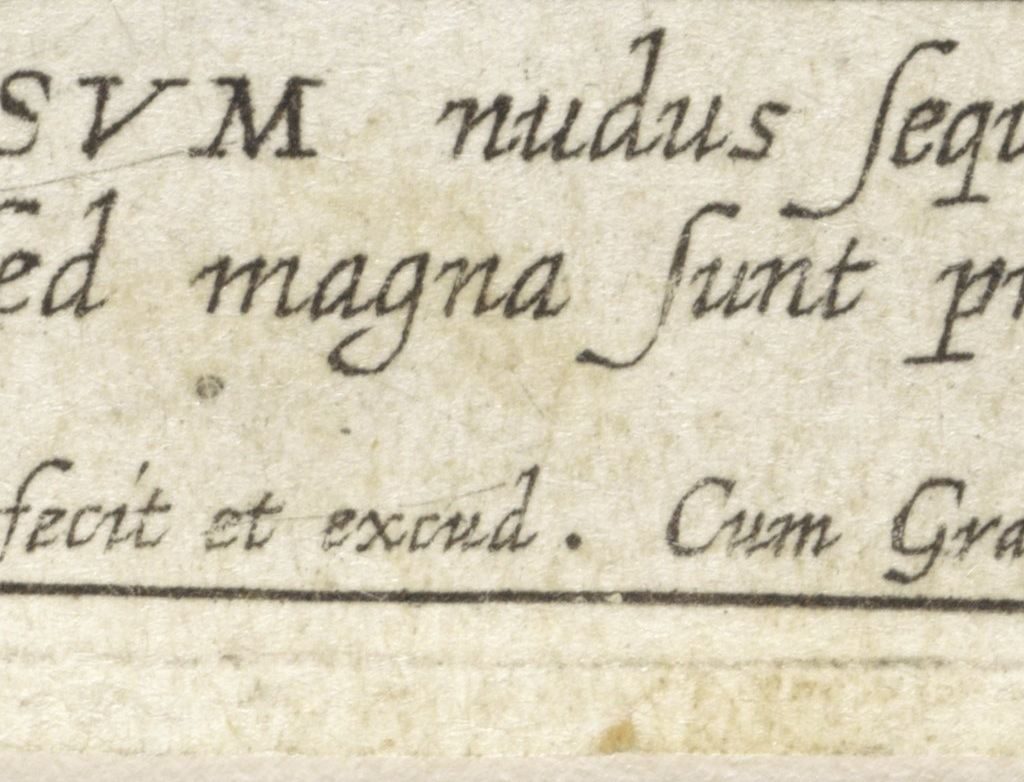 SVM nudus ſequ
ed magna ſunt pr
fecit et excud. Cum Gra